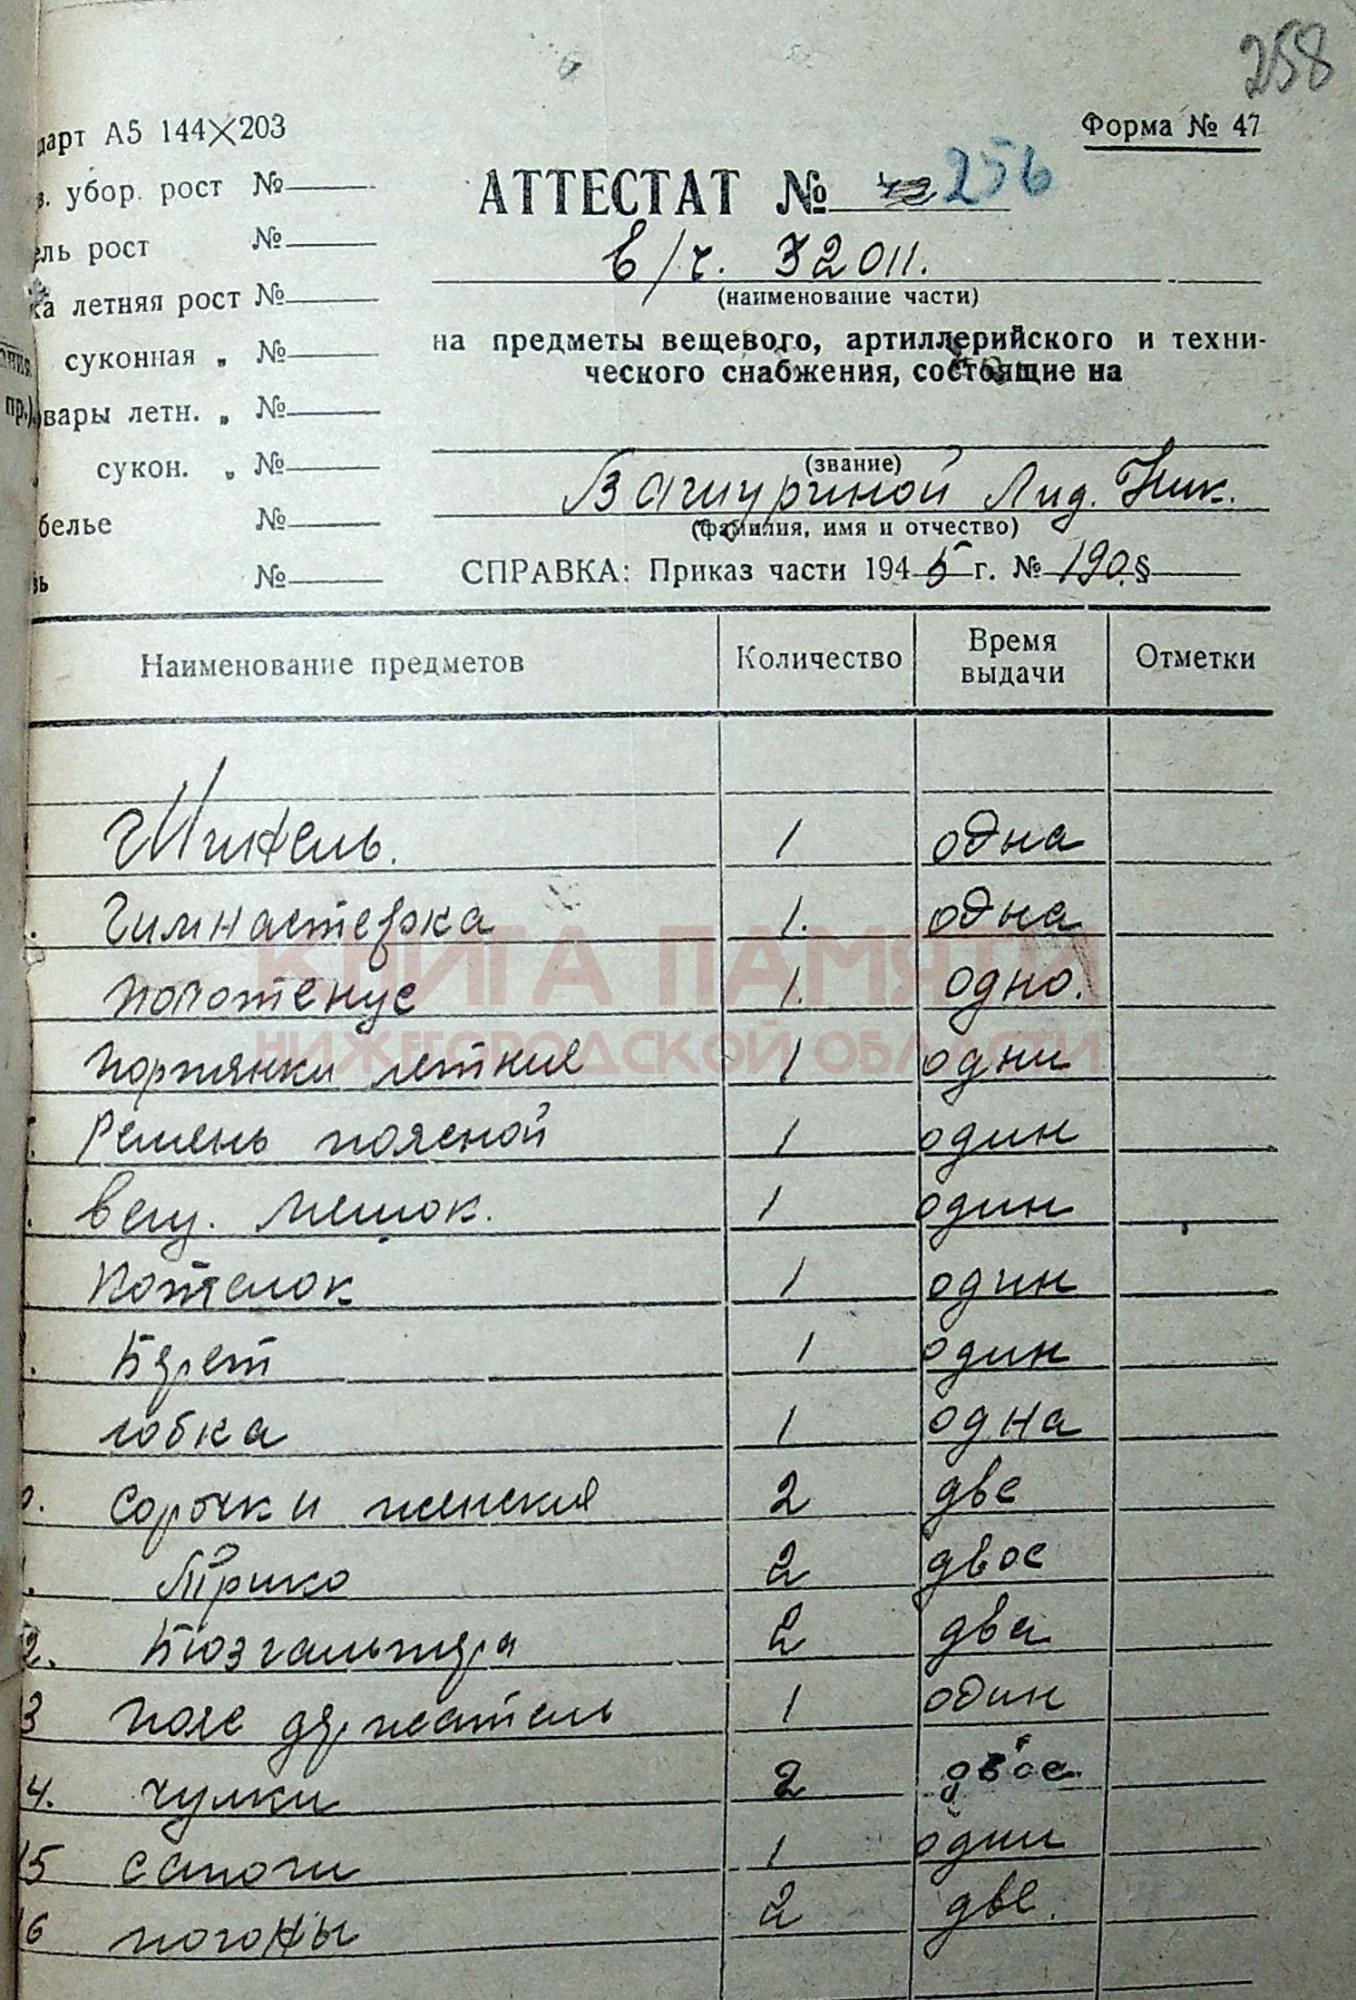 258
дарт А5 144×203
Форма № 47
в. убор. рост №
ель рост №
ка летняя рост №
суконная „ №
вары летн. „ №
сукон. „ №
белье №
вь №
пр.).
АТТЕСТАТ № 256
в/ч. 32011.
(наименование части)
на предметы вещевого, артиллерийского и техни-
ческого снабжения, состоящие на
(звание)
Вашуриной Лид. Ник.
(фамилия, имя и отчество)
СПРАВКА: Приказ части 1945 г. № 190. §
Наименование предметов Количество Время выдачи Отметки
Шинель. 1 одна
Гимнастерка 1. одна
Полотенце 1. одно.
Портянки летние 1 одни
Ремень поясной 1 один
вещ. мешок. 1 один
Котелок 1 один
Берет 1 один
юбка 1 одна
0. Сорочки женския 2 две
1. Трико 2 двое
2. Бюзгальтера 2 два
3 пояс держатель 1 один
4. чулки 2 двое
15 сапоги 1 одни
16 погоны 2 две.
КНИГА ПАМЯТИ
НИЖЕГОРОДСКОЙ ОБЛАСТИ